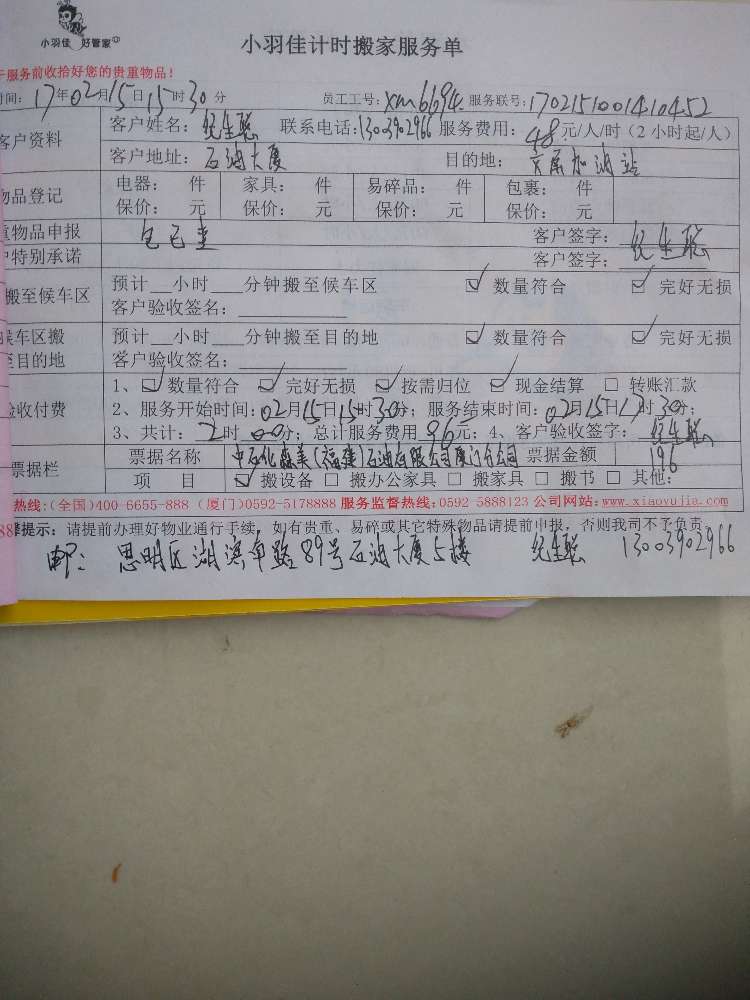 小羽佳 好管家
小羽佳计时搬家服务单
于服务前收拾好您的贵重物品!
时间: 17年02月15日15时30分 员工工号: xm6694 服务联号: 1702151001410452
客户资料 客户姓名: 联系电话: 13003902966 服务费用: 48元/人/时(2小时起/人)
客户地址: 石油大厦 目的地: 加油站
物品登记 电器: 件 家具: 件 易碎品: 件 包裹: 件
保价: 元 保价: 元 保价: 元 保价: 元
重物品申报 客户签字:
户特别承诺 客户签字:
搬至候车区 预计__小时___分钟搬至候车区 数量符合 完好无损
客户验收签名:
候车区搬至目的地 预计__小时___分钟搬至目的地 数量符合 完好无损
客户验收签名:
验收付费 1、数量符合 完好无损 按需归位 现金结算 转账汇款
2、服务开始时间: 02月15日15时30分; 服务结束时间: 02月15日17时30分;
3、共计: 2时00分; 总计服务费用 96元; 4、客户验收签字:
票据栏 票据名称 中石化森美(福建)石油有限公司厦门分公司 票据金额 196
项 目 搬设备 搬办公家具 搬家具 搬书 其他:
热线:(全国)400-6655-888 (厦门)0592-5178888 服务监督热线:0592-5888123 公司网站:www.xiaoyujia.com
提示: 请提前办理好物业通行手续, 如有贵重、易碎或其它特殊物品请提前申报, 否则我司不予负责
邮: 思明区湖滨南路89号石油大厦5楼 13003902966